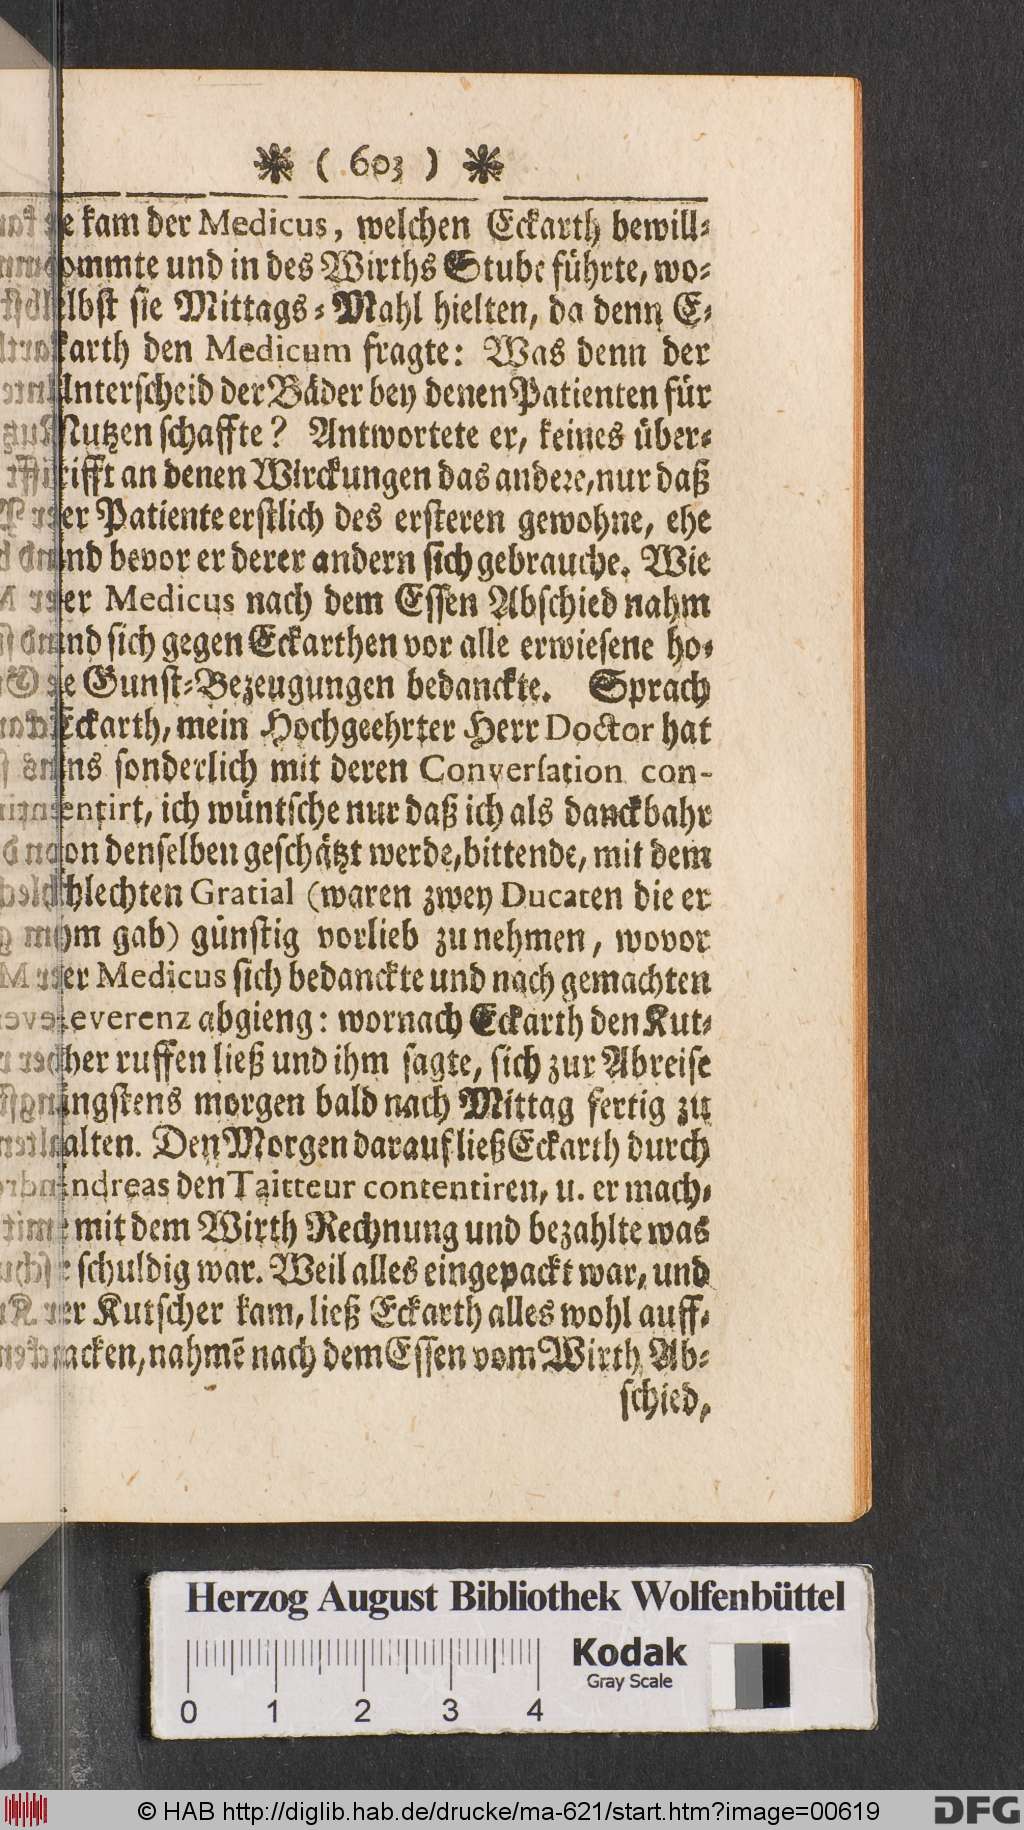 * ( 603 ) *
e kam der Medicus, welchen Eckarth bewill-
ommte und in des Wirths Stube führte, wo-
elbst sie Mittags-Mahl hielten, da denn E-
karth den Medicum fragte: Was denn der
Unterscheid der Bäder bey denen Patienten für
Nutzen schaffte? Antwortete er, keines über-
rifft an denen Wirckungen das andere, nur daß
er Patiente erstlich des ersteren gewohne, ehe
nd bevor er derer andern sich gebrauche. Wie
er Medicus nach dem Essen Abschied nahm
nd sich gegen Eckarthen vor alle erwiesene ho-
e Gunst-Bezeugungen bedanckte. Sprach
Eckarth, mein Hochgeehrter Herr Doctor hat
ns sonderlich mit deren Conversation con-
entirt, ich wüntsche nur daß ich als danckbahr
on denselben geschätzt werde, bittende, mit dem
chlechten Gratial (waren zwey Ducaten die er
hm gab) günstig vorlieb zu nehmen, wovor
er Medicus sich bedanckte und nach gemachten
Reverenz abgieng: wornach Eckarth den Kut-
cher ruffen ließ und ihm sagte, sich zur Abreise
ängstens morgen bald nach Mittag fertig zu
alten. Den Morgen darauf ließ Eckarth durch
Andreas den Taitteur contentiren, u. er mach-
e mit dem Wirth Rechnung und bezahlte was
r schuldig war. Weil alles eingepackt war, und
er Kutscher kam, ließ Eckarth alles wohl auff-
acken, nahmē nach dem Essen vom Wirth Ab-
schied,
Herzog August Bibliothek Wolfenbüttel
Kodak
Gray Scale
0 1 2 3 4
© HAB http://diglib.hab.de/drucke/ma-621/start.htm?image=00619
DFG